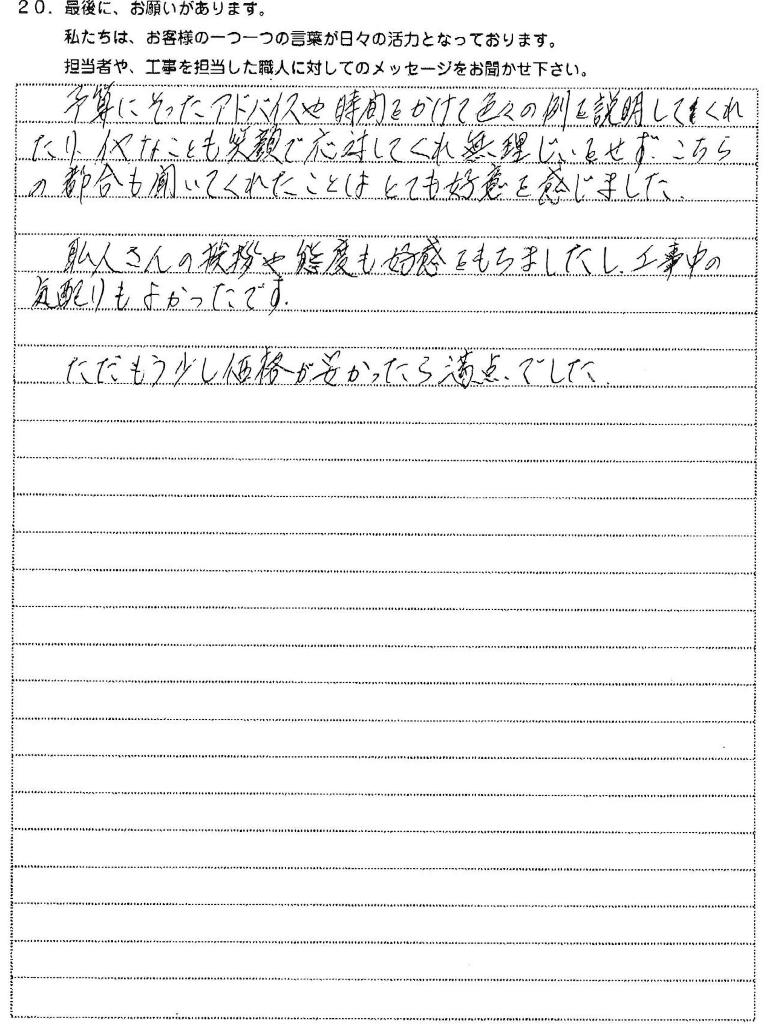 20．最後に、お願いがあります。
私たちは、お客様の一つ一つの言葉が日々の活力となっております。
担当者や、工事を担当した職人に対してのメッセージをお聞かせ下さい。
予算にそったアドバイスや時間をかけて色々の例を説明してくれ
たり、イヤなことも笑顔で応対してくれ無理じいをせず、こちら
の都合も聞いてくれたことはとても好意を感じました。
職人さんの挨拶や態度も好感をもちましたし、工事中の
気配りもよかったです。
ただもう少し価格が安かったら満点、でした。